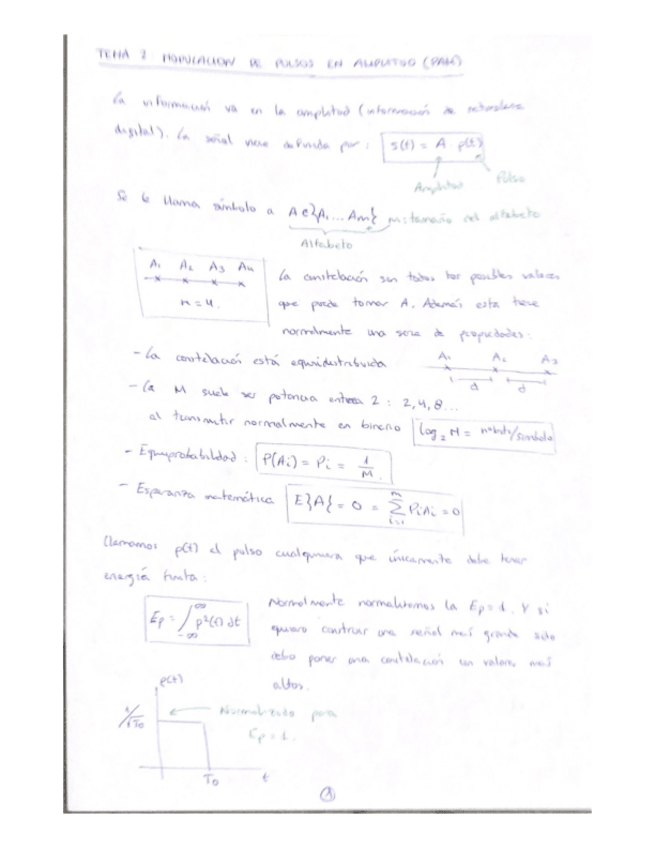 TEMA 2: MODULACION DE PULSOS EN AMPLITUD (PAM)
La información va en la amplitud (información de naturaleza
digital). La señal viene definida por: s(t) = A · p(t)
Amplitud Pulso
Se le llama símbolo a A∈{A₁ ... Am} m: tamaño del alfabeto
Alfabeto
A₁ A₂ A₃ A₄
M = 4.
La constelación son todos los posibles valores
que puede tomar A. Además esta tiene
normalmente una serie de propiedades:
- La constelación está equidistribuida
A₁ A₂ A₃
d d
- La M suele ser potencia entera 2: 2,4,8...
al transmitir normalmente en binario log₂ M = nºbits/símbolo
- Equiprobabilidad: P(Ai) = Pi = 1/M.
- Esperanza matemática E{A} = 0 = Σ PiAi = 0
m
i=1
Llamamos p(t) el pulso cualquiera que únicamente debe tener
energía finita:
Ep = ∫ p²(t) dt
∞
-∞
Normalmente normalizamos la Ep=1. Y si
quiero construir una señal más grande solo
debo poner una constelación con valores más
altos.
p(t)
1/√T₀
Normalizado para
Ep = 1.
T₀ t
1